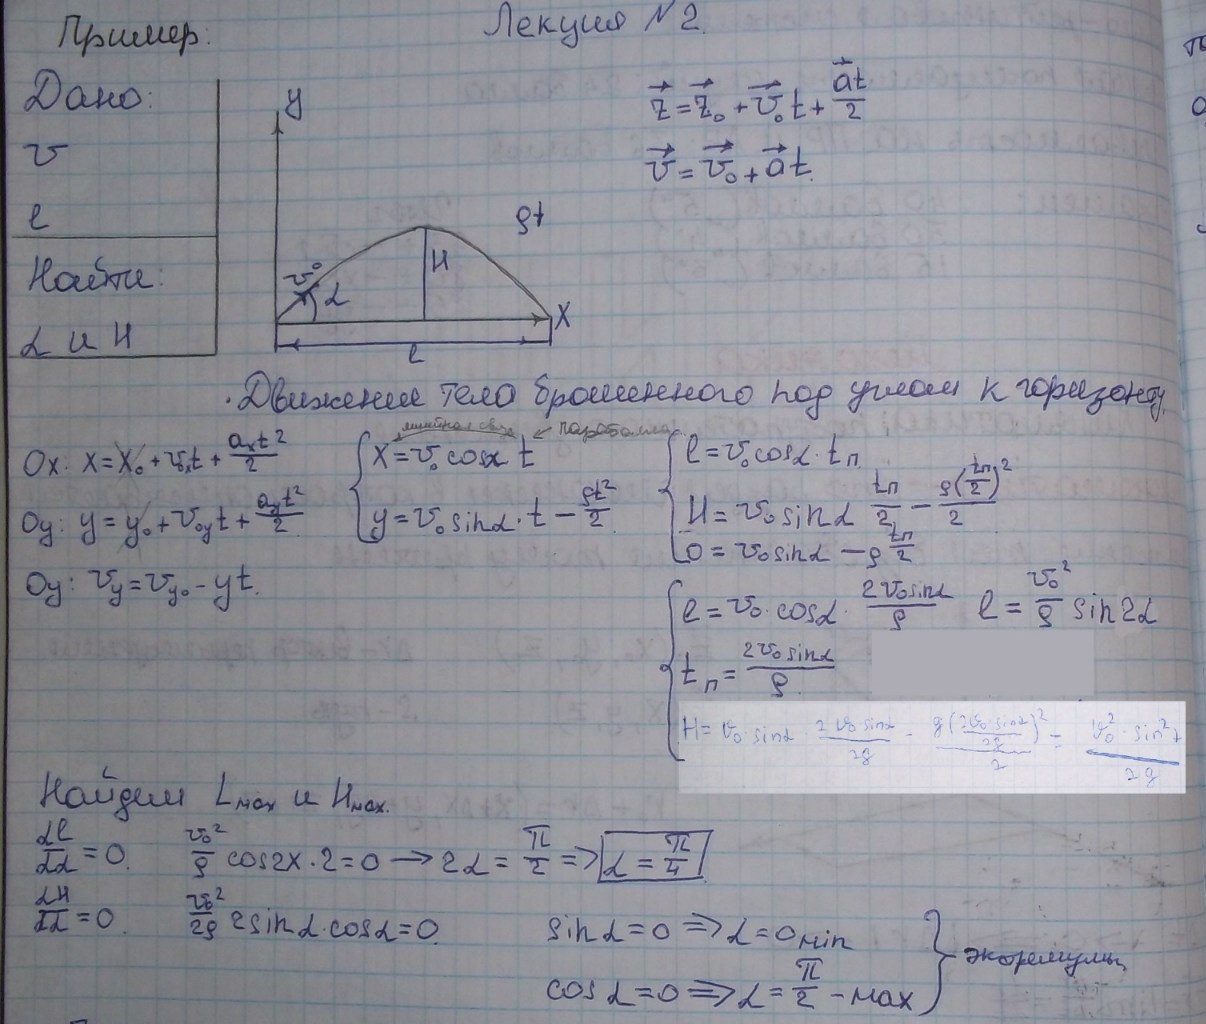 Лекция №2.
Пример:
Дано:
v
l
Найти:
α и H
y
v₀
α
H
gt
X
l
r⃗ = r⃗₀ + v⃗₀t + a⃗t/2
v⃗ = v⃗₀ + a⃗t.
Движение тело брошенного под углом к горизонту.
линейная связь
парабола
Ox: x = x₀ + v₀ₓt + aₓt²/2
Oy: y = y₀ + v₀yt + ayt²/2
Oy: vy = vy₀ - yt.
x = v₀ cosα t
y = v₀ sinα · t - gt²/2
l = v₀ cosα · tп
H = v₀ sinα tп/2 - g(tп/2)²/2
0 = v₀ sinα - g tп/2
l = v₀ · cosα · 2v₀sinα/g l = v₀²/g sin2α
tп = 2v₀sinα/g
H = v₀ sinα · 2v₀sinα/2g - g(2v₀·sinα/2g)²/2 = v₀²·sin²α/2g
Найдем Lmax и Hmax.
dl/dα = 0. v₀²/g cos2x·2 = 0 → 2α = π/2 => α = π/4
dH/dα = 0. v₀²/2g 2sinα·cosα = 0.
sinα = 0 => α = 0 min
cosα = 0 => α = π/2 - max
экстремумы